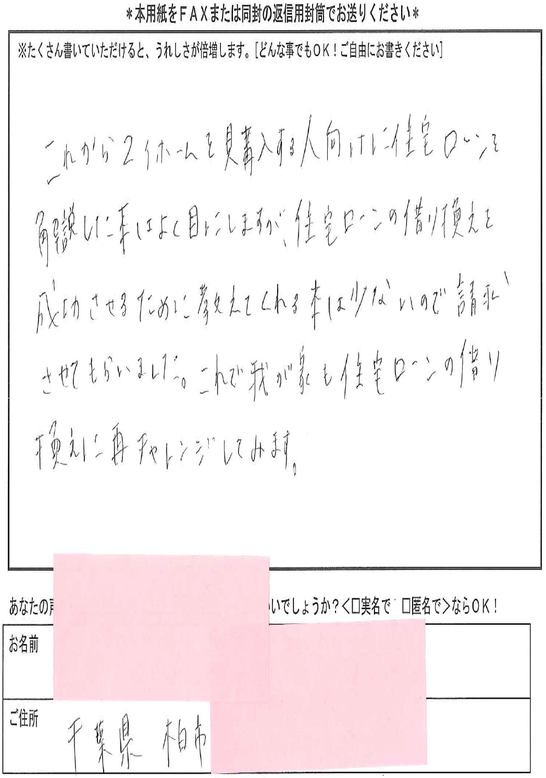 *本用紙をFAXまたは同封の返信用封筒でお送りください*
※たくさん書いていただけると、うれしさが倍増します。[どんな事でもOK!ご自由にお書きください]
これからマイホームを購入する人向けに住宅ローンを
解説した本はよく目にしますが、住宅ローンの借り換えを
成功させるために教えてくれる本は少ないので請求
させてもらいました。これで我が家も住宅ローンの借り
換えに再チャレンジしてみます。
あなたの いでしょうか?<□実名で □匿名で>ならOK!
お名前
ご住所 千葉県 柏市